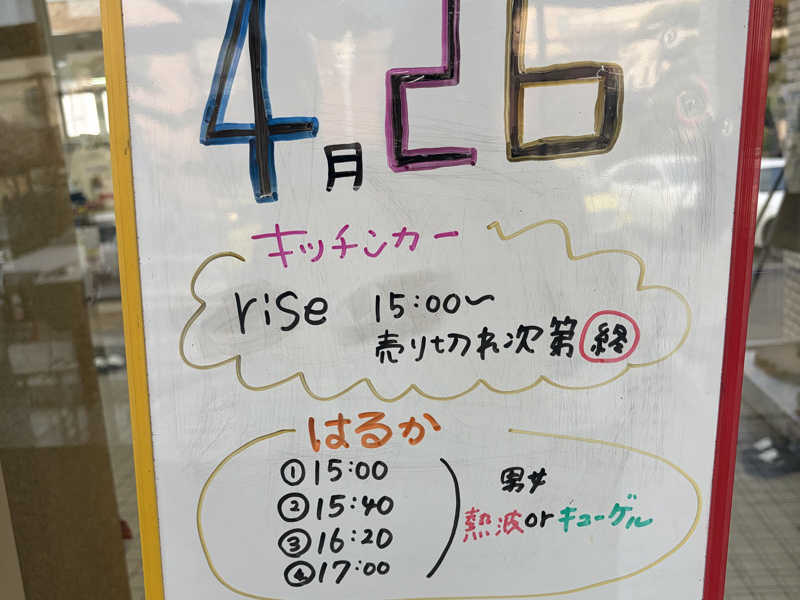 4月26
キッチンカー
rise 15:00〜
売り切れ次第 終
はるか
①15:00
②15:40
③16:20
④17:00
男女
熱波orキューゲル